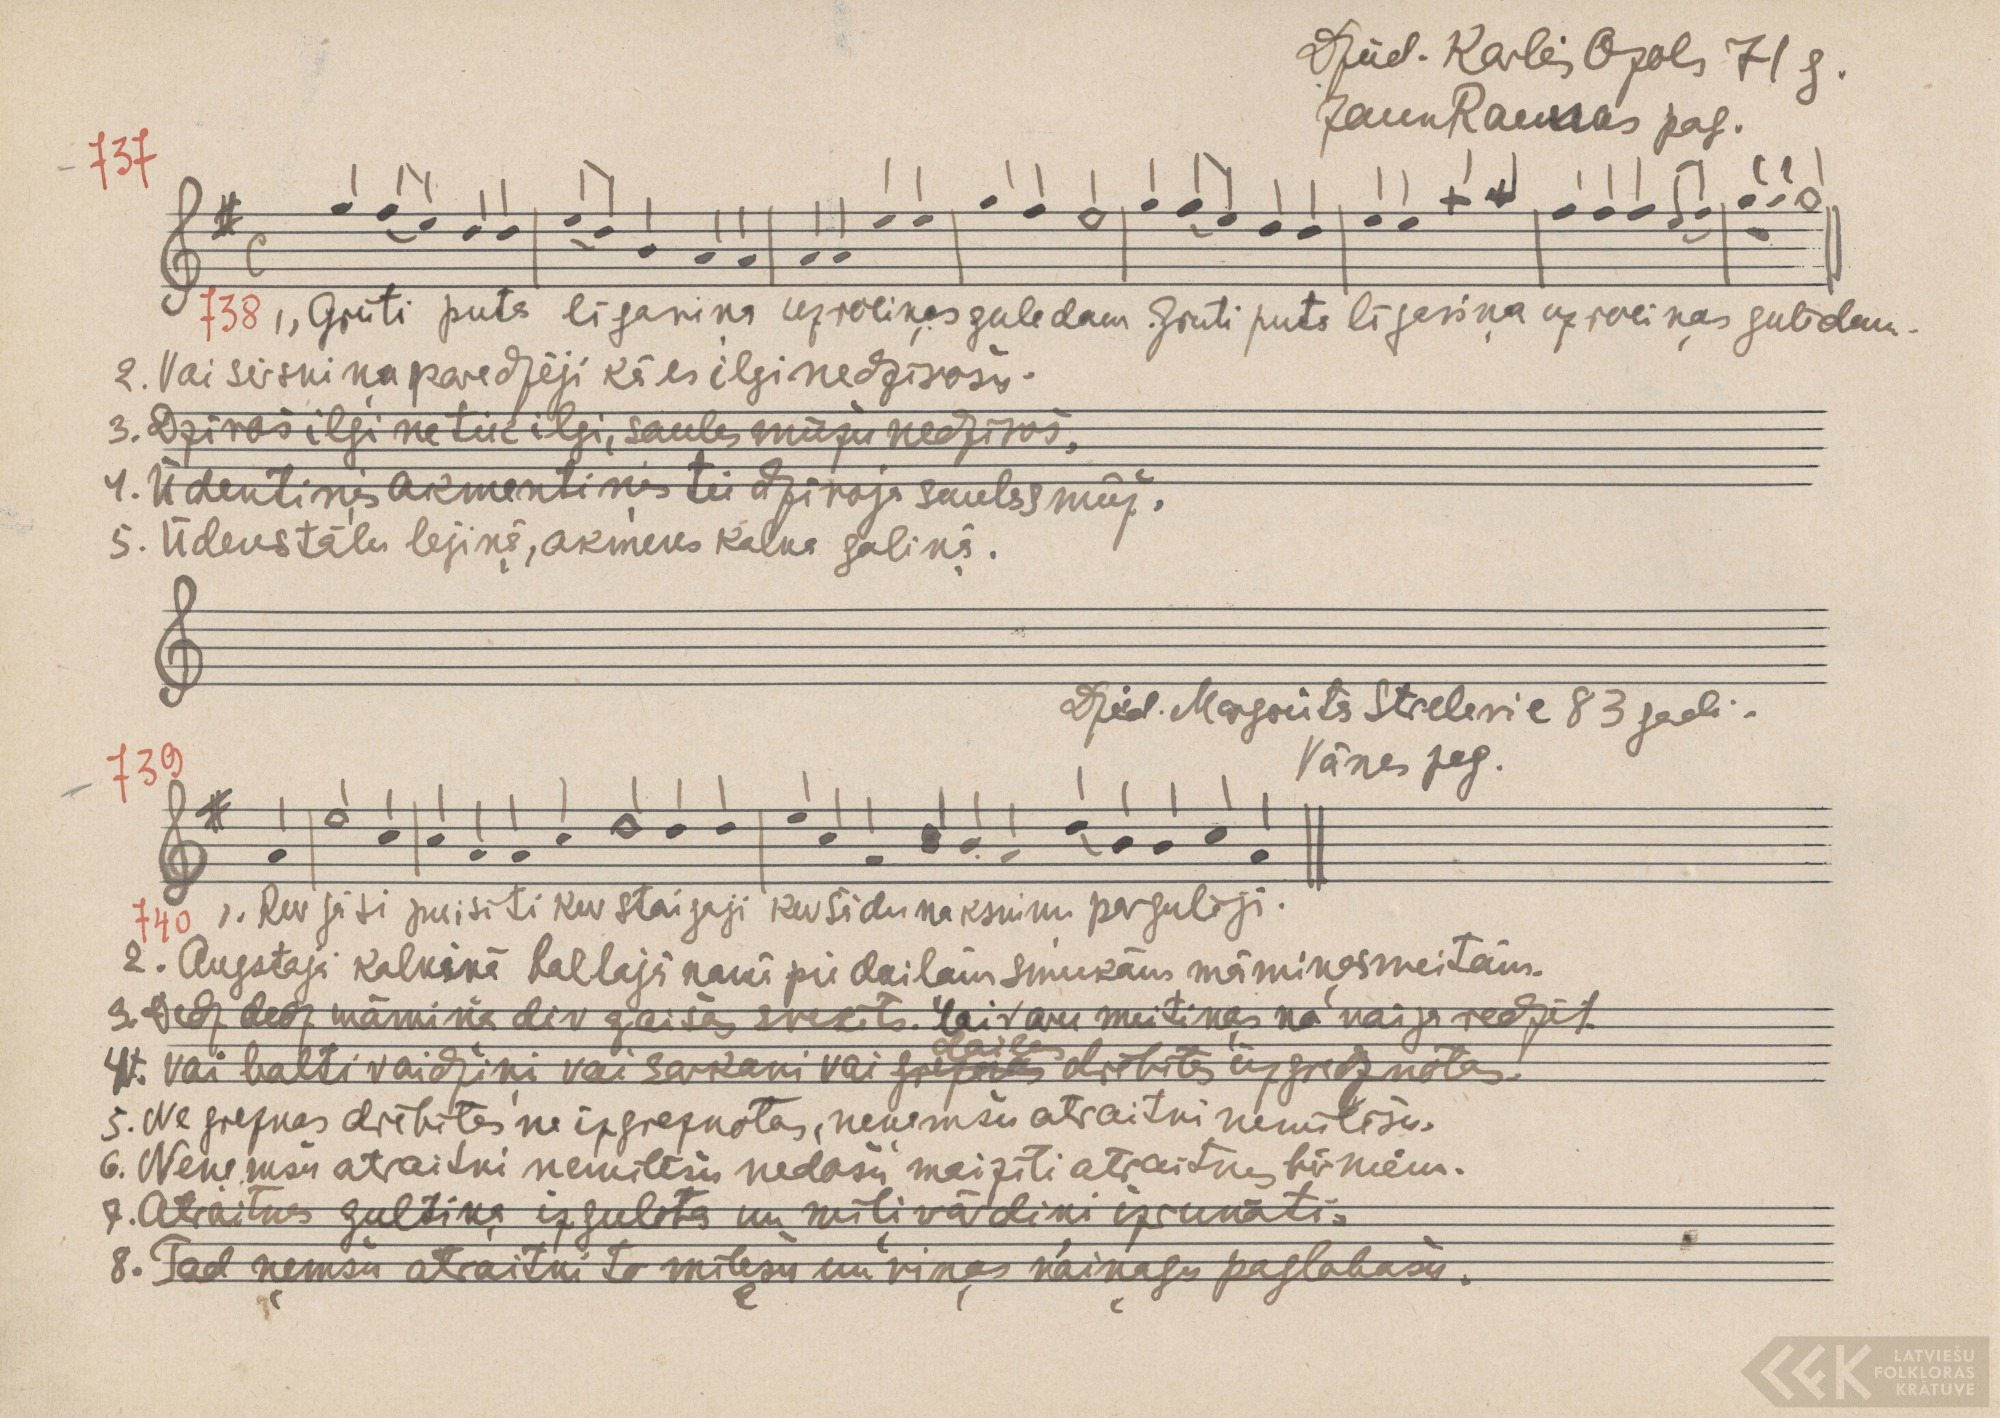 Dzied. Karlis Ozols 71 g.
JaunRaunas pag.
737
738 1, Grūti puta līgaviņa uz rociņas guledam Gruti puta līgaviņa uz rociņas gulēdam.
2. Vai sirsniņa paredzēji kā es ilgi nedzīvošu.
3. Dzīvos ilgi ne tik ilgi, saules mūžu nedzīvos,
4. Ūdentiņis akmentiņis tie dzīvoja saules mūž.
5. Ūdens tālu lejiņā, akmens kalna galiņā.
Dzied. Margrieta Strelevic 83 gadi.
Vānes pag.
739
740 1. Kur jāsi puisīti kur staigaji kur šīdu naksniņu pargulēji.
2. Augstajā kalniņā baltajā namā pie dailām smukām māmiņas meitām.
3. Dedz dedz māmiņa div gaišas svecīts. Lai varu meitiņas vaiga redzēt.
4. vai balti vaidziņi vai sarkani vai daiļas drēbītes izgredznotas.
5. Ne greznas drēbītes ne izgreznotas, neņemšu atraitni nemīlēšu.
6. Neņemšu atraitni nemīlēšu nedošu maizīti atraitnes bērniem.
7. Atraitnes gultiņa izgulēta un mīļi vārdiņi izrunāti.
8. Tad ņemšu atraitni to mīlēšu un viņas vaiņagu paglabašu.
LATVIEŠU
FOLKLORAS
KRĀTUVE